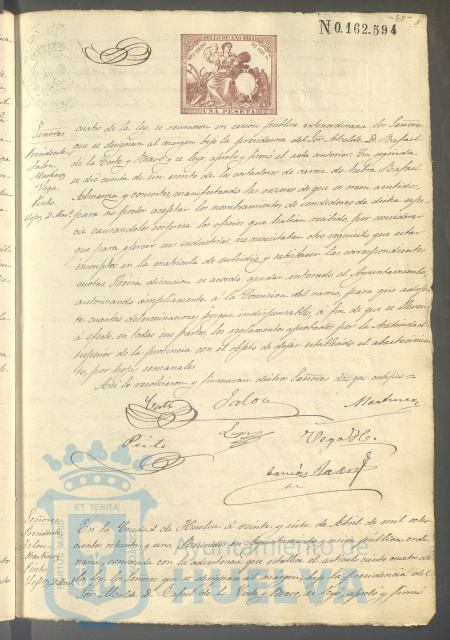 N 0.162.594
SELLO DE
UNA PESETA
Señores
Presidente
Jalon
Martinez
Vega
Pinto
Lopez, D. Ml
cuatro de la ley, se reunieron en sesion pública extraordinaria los Señores
que se designan al margen bajo la presidencia del Sor. Alcalde D. Rafael
de la Corte y Bravo y se leyó, aprobó y firmó el acta anterior. En seguida
se dió cuenta de un escrito de los cortadores de carne de hebra Rafael
Almanza y consortes, manifestando las razones de que se creen asistidos
para no poder aceptar los nombramientos de vendedores de dicha especie
causandoles sorpresa los oficios que habian recibido, por considerar
que para ejercer sus industrias, no necesitaban otro requisito que estar
inscriptos en la matricula de subsidio y satisfacer las correspondientes
cuotas. Prévia discusion se acordó, quedar enterado el Ayuntamiento,
autorizando ámpliamente á la Comision del ramo, para que adopte
cuantas determinaciones juzgue indispensables, á fin de que se lleven
á efecto, en todas sus partes, los reglamentos aprobados por la Autoridad
superior de la provincia con el objeto de dejar establecido el abastecimiento,
por
semanales
Asi lo resolvieron y firmaran dichos Señores de que certifico =
Corte
Jalon
Martinez
Pinto
Lopez
Vega
Señores
Presidente
Jalon
Martinez
Pinto
Lopez, D. Ml
En la Ciudad de Huelva á veinte y siete de Abril de mil ochocientos
ochenta y una
Ayuntamiento
sesion publica ordinaria,
convocada con la advertencia que establece el articulo ciento cuatro de
la ley los Señores que se designan al margen bajo la presidencia del
Sor. Alcalde D. Rafael de la Corte y Bravo, se leyó, aprobó y firmó
ET TERRÆ
Ayuntamiento de
HUELVA